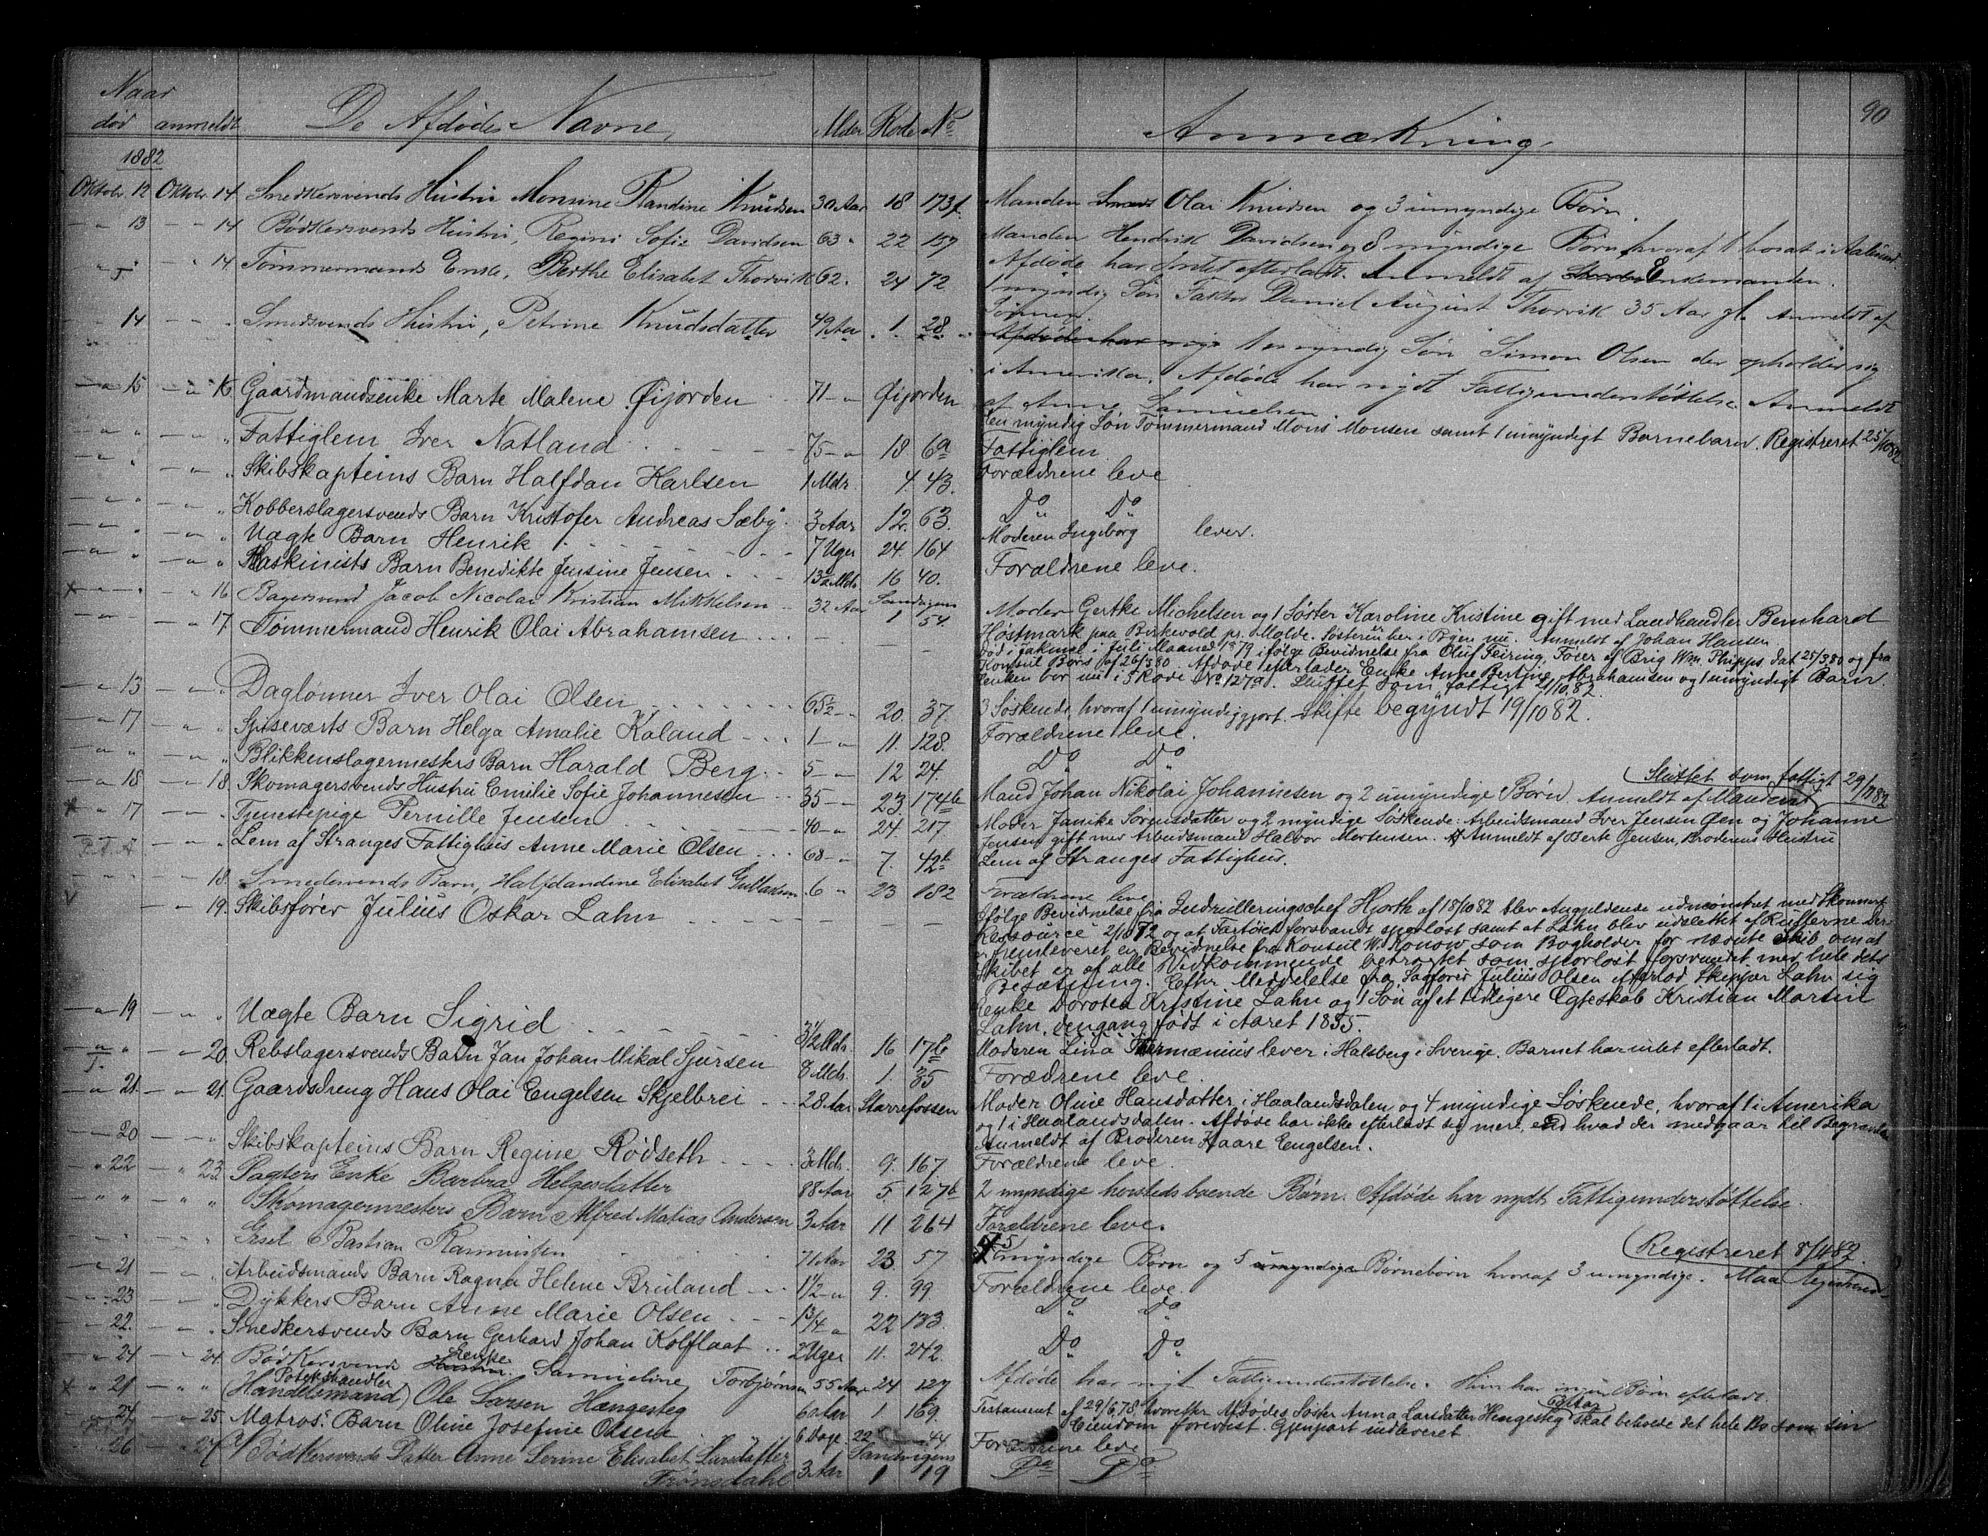 90
Naar
død anmeldt De Afdødes Navne, Alder Rode No Anmærkning.
1882
Oktober 12 Oktober 14 Snedkersvends Hustru Monsine Randine Knudsen 30 Aar 18 173f Manden Olai Knudsen og 3 umyndige Børn.
" 13 " 14 Bødkersvends Hustru, Regine Sofie Davidsen 63 " 22 157 Manden Hendrik Davidsen og 8 myndige Børn, hvoraf 1 bosat i Aalesund.
Afdøde har intet efterladt. Anmeldt af Enkemanden.
" " 14 Tømmermands Enke, Berthe Elisabet Thorvik 62 " 24 72 1 myndig Søn Faktor Daniel August Thorvik 35 Aar gl. Anmeldt af
Sønnen.
14 " Smedsvends Hustru, Petrine Knudsdatter 49 Aar 1 28 Afdøde har 1 myndig Søn Simon Olsen der opholder sig
i Amerika. Afdøde har nydt Fattigunderstøttelse. Anmeldt
af Anne Samuelsen.
" 15 " 16 Gaardmandsenke Marte Malene Øijorden 71 " Øijorden En myndig Søn Tømmermand Mons Monsen samt 1 umyndigt Barnebarn. Registreret 25/10 82
" " Fattiglem Iver Natland 75 " 18 6a Fattiglem.
" " Skibskapteins Barn Halfdan Karlsen 1 Mdr. 4. 43. Forældrene leve
" " Kobberslagersvends Barn Kristofer Andreas Sæby 3 Aar 12. 63. Do Do
" " Uægte Barn Henrik 7 Uger 24 164 Moderen Ingeborg lever.
" " Maskinists Barn Benedikte Jensine Jensen 13 Mdr 16 40. Forældrene leve.
x " 16 Bagersvend Jacob Nicolai Kristian Mikkelsen 32 Aar Sandvigens 1 54 Moder Gertke Michelsen og 1 Søster Karoline Kristine gift med Landhandler Bernhard
Høstmark paa Birkevold pr. Molde. Søsteren her i Byen nu. Anmeldt af Johan Hansen
" 17 Tømmermand Henrik Olai Abrahamsen Død i Jakmel i Juli Maaned 1879 ifølge Bevidnelse fra Oluf Feiring, Fører af Brig Wm. Phipps, dat 25/3 80 og fra
Konsul Børs af 26/3 80. Afdøde efterlader Enke Anne Bertine Abrahamsen og 1 umyndigt Barn
Enken bor nu i 5 Rode No 127a. Sluttet som fattigt 21/10.82.
" 13 " Daglønner Iver Olai Olsen 65 1/2 " 20. 37. 3 Søskende, hvoraf 1 umyndiggjort. Skifte begyndt 19/10 82.
" 17 " Spiseværts Barn Helga Amalie Kaland 1 " 11. 128. Forældrene leve.
" " Blikkenslagermesters Barn Harald Berg 5 " 12 24. Do Do
(Sluttet som fattigt 29/11 82
" 18 18. Skomagersvends Hustru Emilie Sofie Johannesen 35 " 23 174b Mand Johan Nikolai Johannesen og 2 umyndige Børn Anmeldt af Manden
x " 17 Tjenestepige Pernille Jensen 40 " 24 217 Moder Janike Sørensdatter og 2 myndige Søskende: Arbeidsmand Iver Jensen Øen og Johanne
Jensen gift med Arbeidsmand Halvor Mortensen. Anmeldt af Berte Jensen, Broderens Hustru
" Lem af Stranges Fattighus Anne Marie Olsen 68 " 7. 42b Lem af Stranges Fattighus.
18. Smedesvends Barn, Halfdandine Elisabet Gullaksen 6 " 23 182 Forældrene leve
V " 19. Skibsfører Julius Oskar Lahn Ifølge Bevidnelse fra Indrulleringschef Hjorth af 18/10 82 blev Angjeldende udmønstret med Skonnert
"Ressource" 2/10 72 og at Fartøiet forsvandt sporløst samt at Lahn blev udslettet af Rullerne. Der
er fremleveret en Bevidnelse fra Konsul W. Konow, som Bogholder for nævnte Skib om at
Skibet er af alle Vedkommende betragtet som sporløst forsvundet med hele dets
Besætning. Efter Meddelelse fra Sagfører Julius Olsen efterlod Skipper Lahn sig
Enke Dorotea Kristine Lahn og 1 Søn af et tidligere Egteskab Kristian Martin
Lahn, dengang født i Aaret 1855.
" 19 " Uægte Barn Sigrid 3 1/2 Mdr 16 17b Moderen Lina lever i Halsberg i Sverige. Barnet har intet efterladt.
" " 20. Rebslagersvends Barn Jan Johan Mikal Sjursen 8 Mdr. 1. 35 Forældrene leve.
" 21 21. Gaardsdreng Hans Olai Engelsen Skjelbrei 28 Aar Starrefossen Moder Oline Hansdatter i Haalandsdalen og 4 myndige Søskende, hvoraf 1 i Amerika
og 1 i Haalandsdalen. Afdøde har ikke efterladt sig mere, end hvad der medgaar til Begravelse
Anmeldt af Broderen Kaare Engelsen.
20 " Skibskapteins Barn Regine Rødseth 3 Mdr. 9. 167 Forældrene leve.
" 22 " 23. Pagters Enke Barbra Helgesdatter 88 Aar 5 127b 2 myndige horstedsboende Børn. Afdøde har nydt Fattigunderstøttelse.
" " Skomagermesters Barn Alfred Matias Andersen 3 Aar 11 264 Forældrene leve.
(Registreret 8/4 82
" Bastian Rasmussen 71 Aar 23 57 5 myndige Børn og 5 Børnebørn hvoraf 3 umyndige.
" 21 " Arbeidsmands Barn Ragna Helene Bruland 1 1/2 " 9. 99. Forældrene leve.
" 23 " Dykkers Barn Anne Marie Olsen 1 3/4 " 22 133. Do Do
" 22. " Snedkersvends Barn Gerhard Johan Kolflaat 2 Uger 11. 242. Do Do
" 24 24. Bødkersvend Enke Samueline Torbjørnsen 55 Aar 24 127 Afdøde har nydt Fattigunderstøttelse. Hun har ingen Børn efterladt.
x " 21 " Potetshandler (Handelsmand) Ole Larsen Hængesteg 60 Aar 1 169. Testament af 29/6.78 hvorefter Afdødes Søster Anna Larsdatter Hengesteg skal beholde det hele Bo som sin
Eiendom forevist. Gjenpart indleveret
24 " 25. Matros. Barn Oline Josefine Olsen 6 Dage 22 44 Forældrene leve
26 27 Bødkersvends Datter Anne Serine Elisabet Larsdatter Frønsdahl 3 Aar Sandvigens 1 19 Do Do